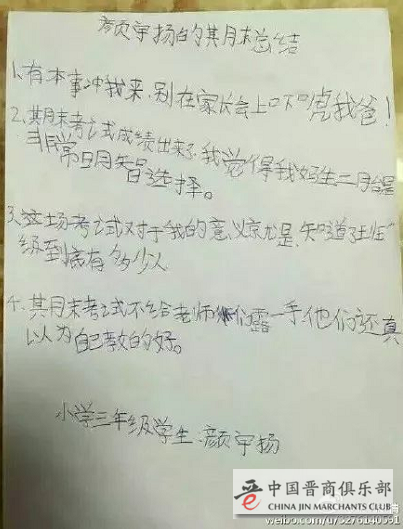 颜宇扬的期末总结
1.有本事冲我来,别在家长会上吓唬我爸!
2.期末考试成绩出来了,我觉得我妈生二胎是
非常明智选择。
3.这场考试对于我的意义就是,知道了班
级到底有多少人
4.期末考试不给老师们露一手,他们还真
以为自己教的好。
小学三年级学生:颜宇扬
中国晋商俱乐部
CHINA JIN MERCHANTS CLUB
weibo.com/u/5276140351